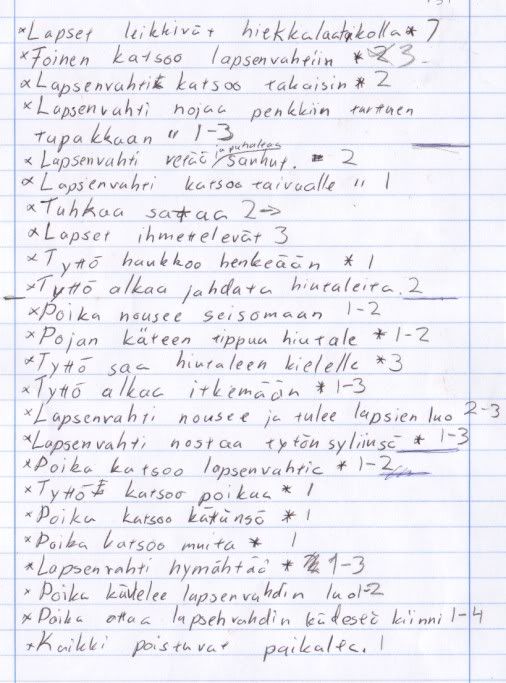 *Lapset leikkivät hiekkalaatikolla * 7
*Toinen katsoo lapsenvahtiin * 3
*Lapsenvahti katsoo takaisin * 2
*Lapsenvahti nojaa penkkiin tarttuen
tupakkaan " 1-3
*Lapsenvahti vetää ja puhaltaa sauhut. = 2
*Lapsenvahti katsoo taivaalle " 1
*Tuhkaa sataa 2→
*Lapset ihmettelevät 3
*Tyttö haukkoo henkeään * 1
*Tyttö alkaa jahdata hiutaleita. 2
*Poika nousee seisomaan 1-2
*Pojan käteen tippuu hiutale * 1-2
*Tyttö saa hiutaleen kielelle * 3
*Tyttö alkaa itkemään * 1-3
*Lapsenvahti nousee ja tulee lapsien luo 2-3
*Lapsenvahti nostaa tytön syliinsä * 1-3
*Poika katsoo lapsenvahtia * 1-2
*Tyttö katsoo poikaa * 1
*Poika katsoo kätänsö * 1
*Poika katsoo muita * 1
*Lapsenvahti hymähtää * 1-3
*Poika kävelee lapsenvahdin luo 1-2
*Poika ottaa lapsenvahdin kädestä kiinni 1-4
*Kaikki poistuvat paikalta. 1